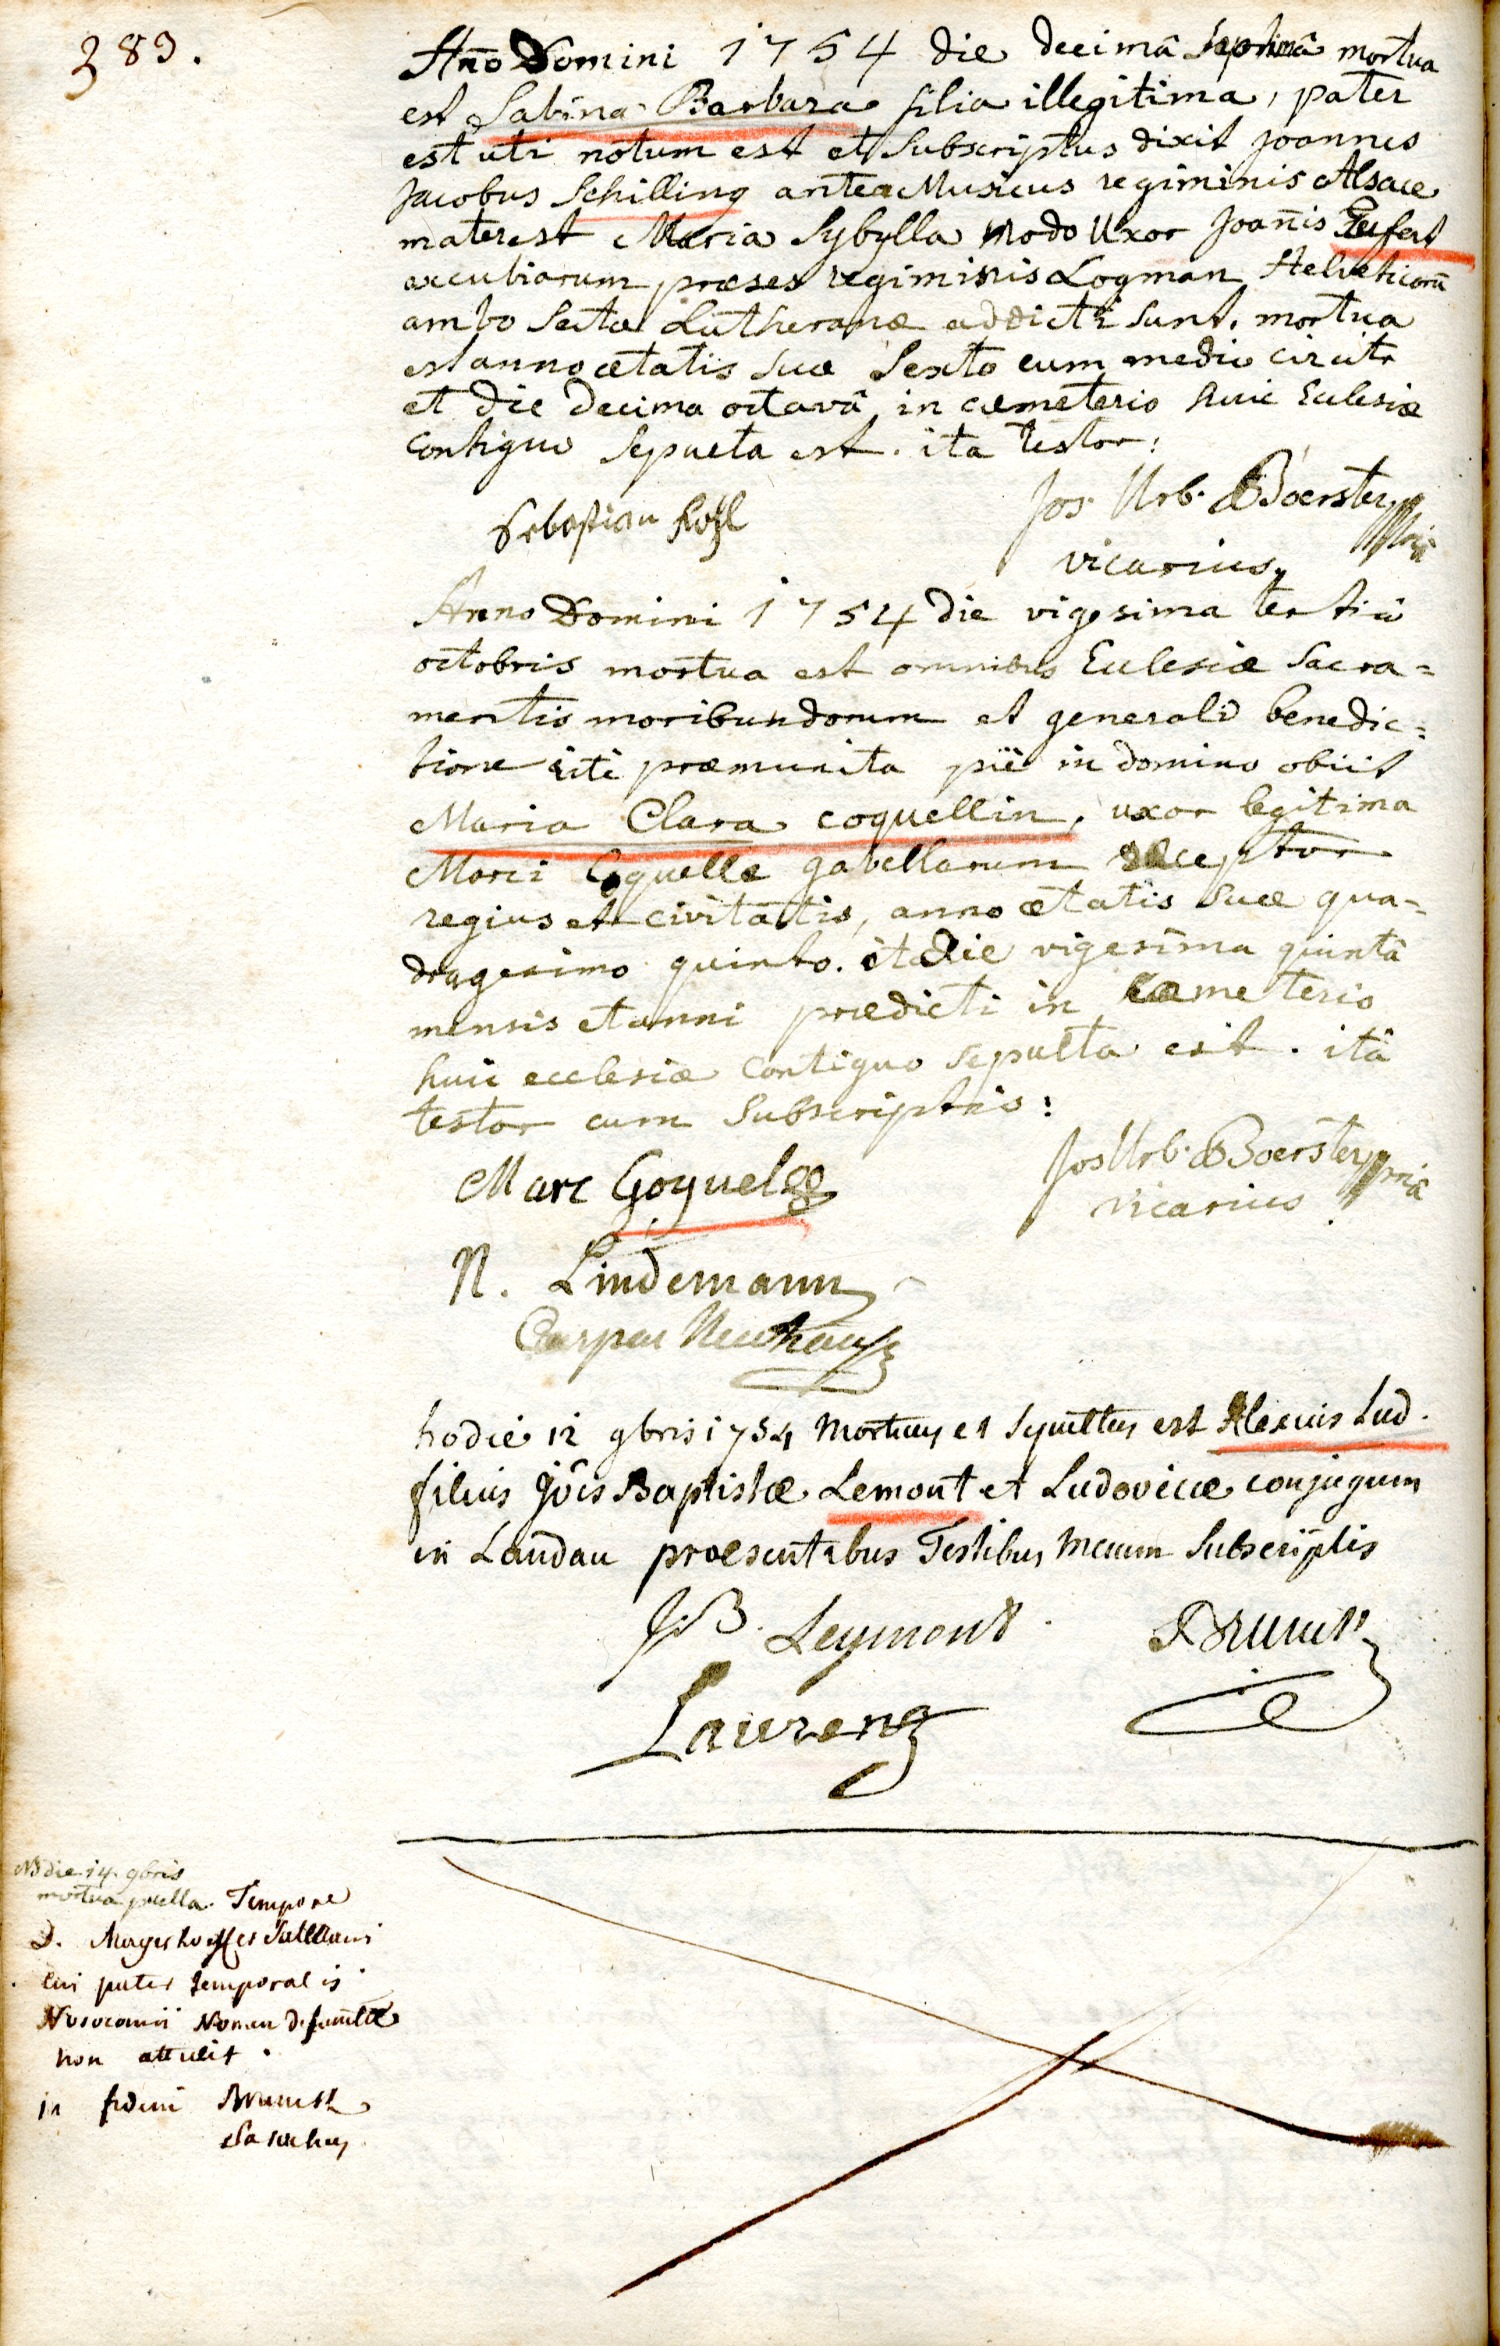 389.
Añno Domini 1754 die decimâ septimâ mortua
est Sabina Barbara filia illegitima, pater
est uti notum est et subscriptus dixit joannes
jacobus Schilling antea Musicus regiminis Alsace
mater est Maria Sybylla modo uxor joañis Seufert
excubiarum præses regiminis Logman Helveticorū
ambo Sectæ Lutheranæ addicti sunt. mortua
est anno ætatis suæ sexto cum medio circiter
et die decima octavâ in cæmeterio huic Eclesiæ
contiguo sepulta est. ita testor:
Sebastian
Jos. Urb. Boerster
vicarius
Anno Domini 1754 die vigesima tertiâ
octobris mortua est omnibus Eclesiæ Sacra=
mentis moribundorum et generali benedic=
tione ritè præmunita piè in domino obiit
Maria Clara coquellin, uxor legitima
Marci Coquelle gabellarum receptor
regius et civitatis, anno ætatis suæ qua-
dragesimo quinto. et die vigesima quintâ
mensis et anni prædicti in cæmeterio
huic ecclesiæ contiguo sepulta est. itâ
testor cum subscriptis:
Marc Goguel
Jos Urb. Boerster
vicarius
N. Lindemann
Caspar Neuhaus
hodie 12 9bris 1754 Mortuus et sepultus est Alexius Lud.
filius Jôis Baptistæ Lemont et Ludovicæ conjugum
in Landau præsentibus Testibus mecum subscriptis
J.B. Leymont
Brunck
Laurenz
NB die 14. 9bris
mortua puella. Tempore
D.
cui pater temporalis
Nosocomii Nomen defunctæ
non attulit.
in fidem Brunck